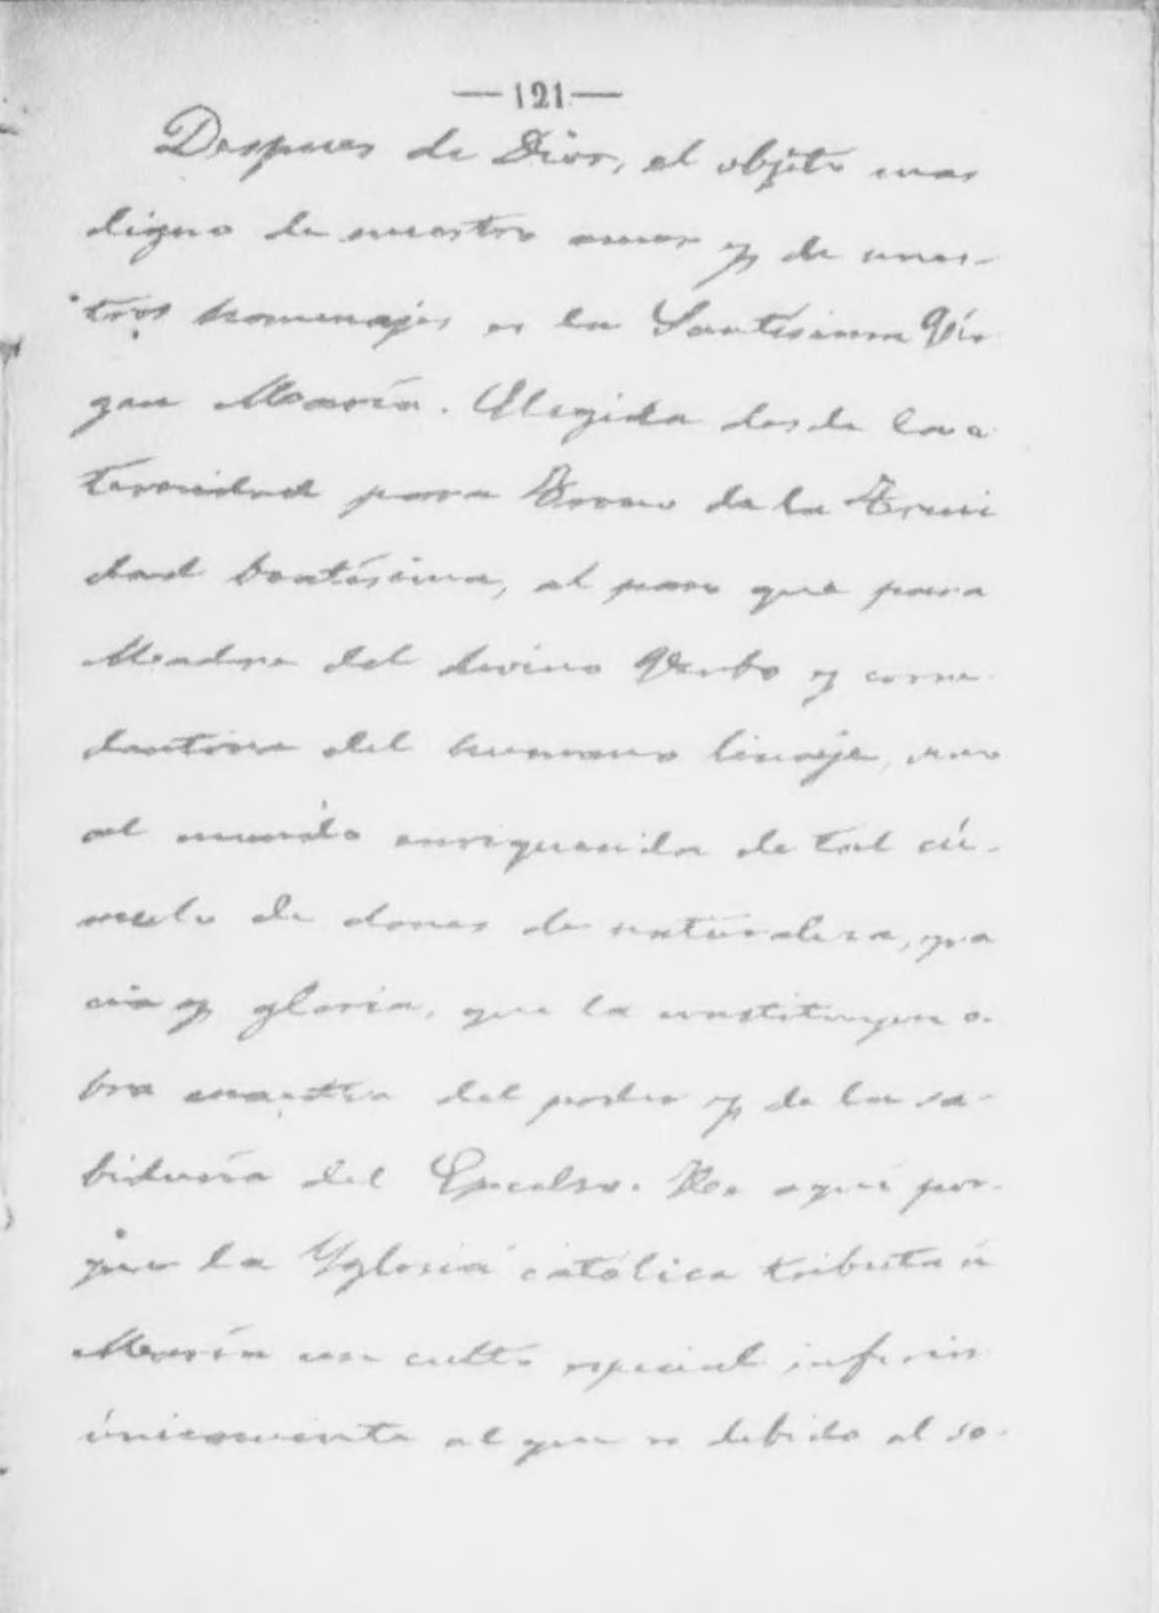 —121—
Despues de Dios, el objeto mas
digno de nuestro amor y de nues-
tros homenajes es la Santísima Vír
gen María. Elegida desde la e
ternidad para Trono de la Trini
dad beatísima, al paso que para
Madre del divino Verbo y corre-
dentora del humano linaje, vino
al mundo enriquecida de tal cú-
mulo de dones de naturaleza, gra
cia y gloria, que la constituyen o-
bra maestra del poder y de la sa-
biduría del Excelso. He aquí por-
que la Yglesia católica tributa á
María un culto especial inferior
únicamente al que es debido al so-